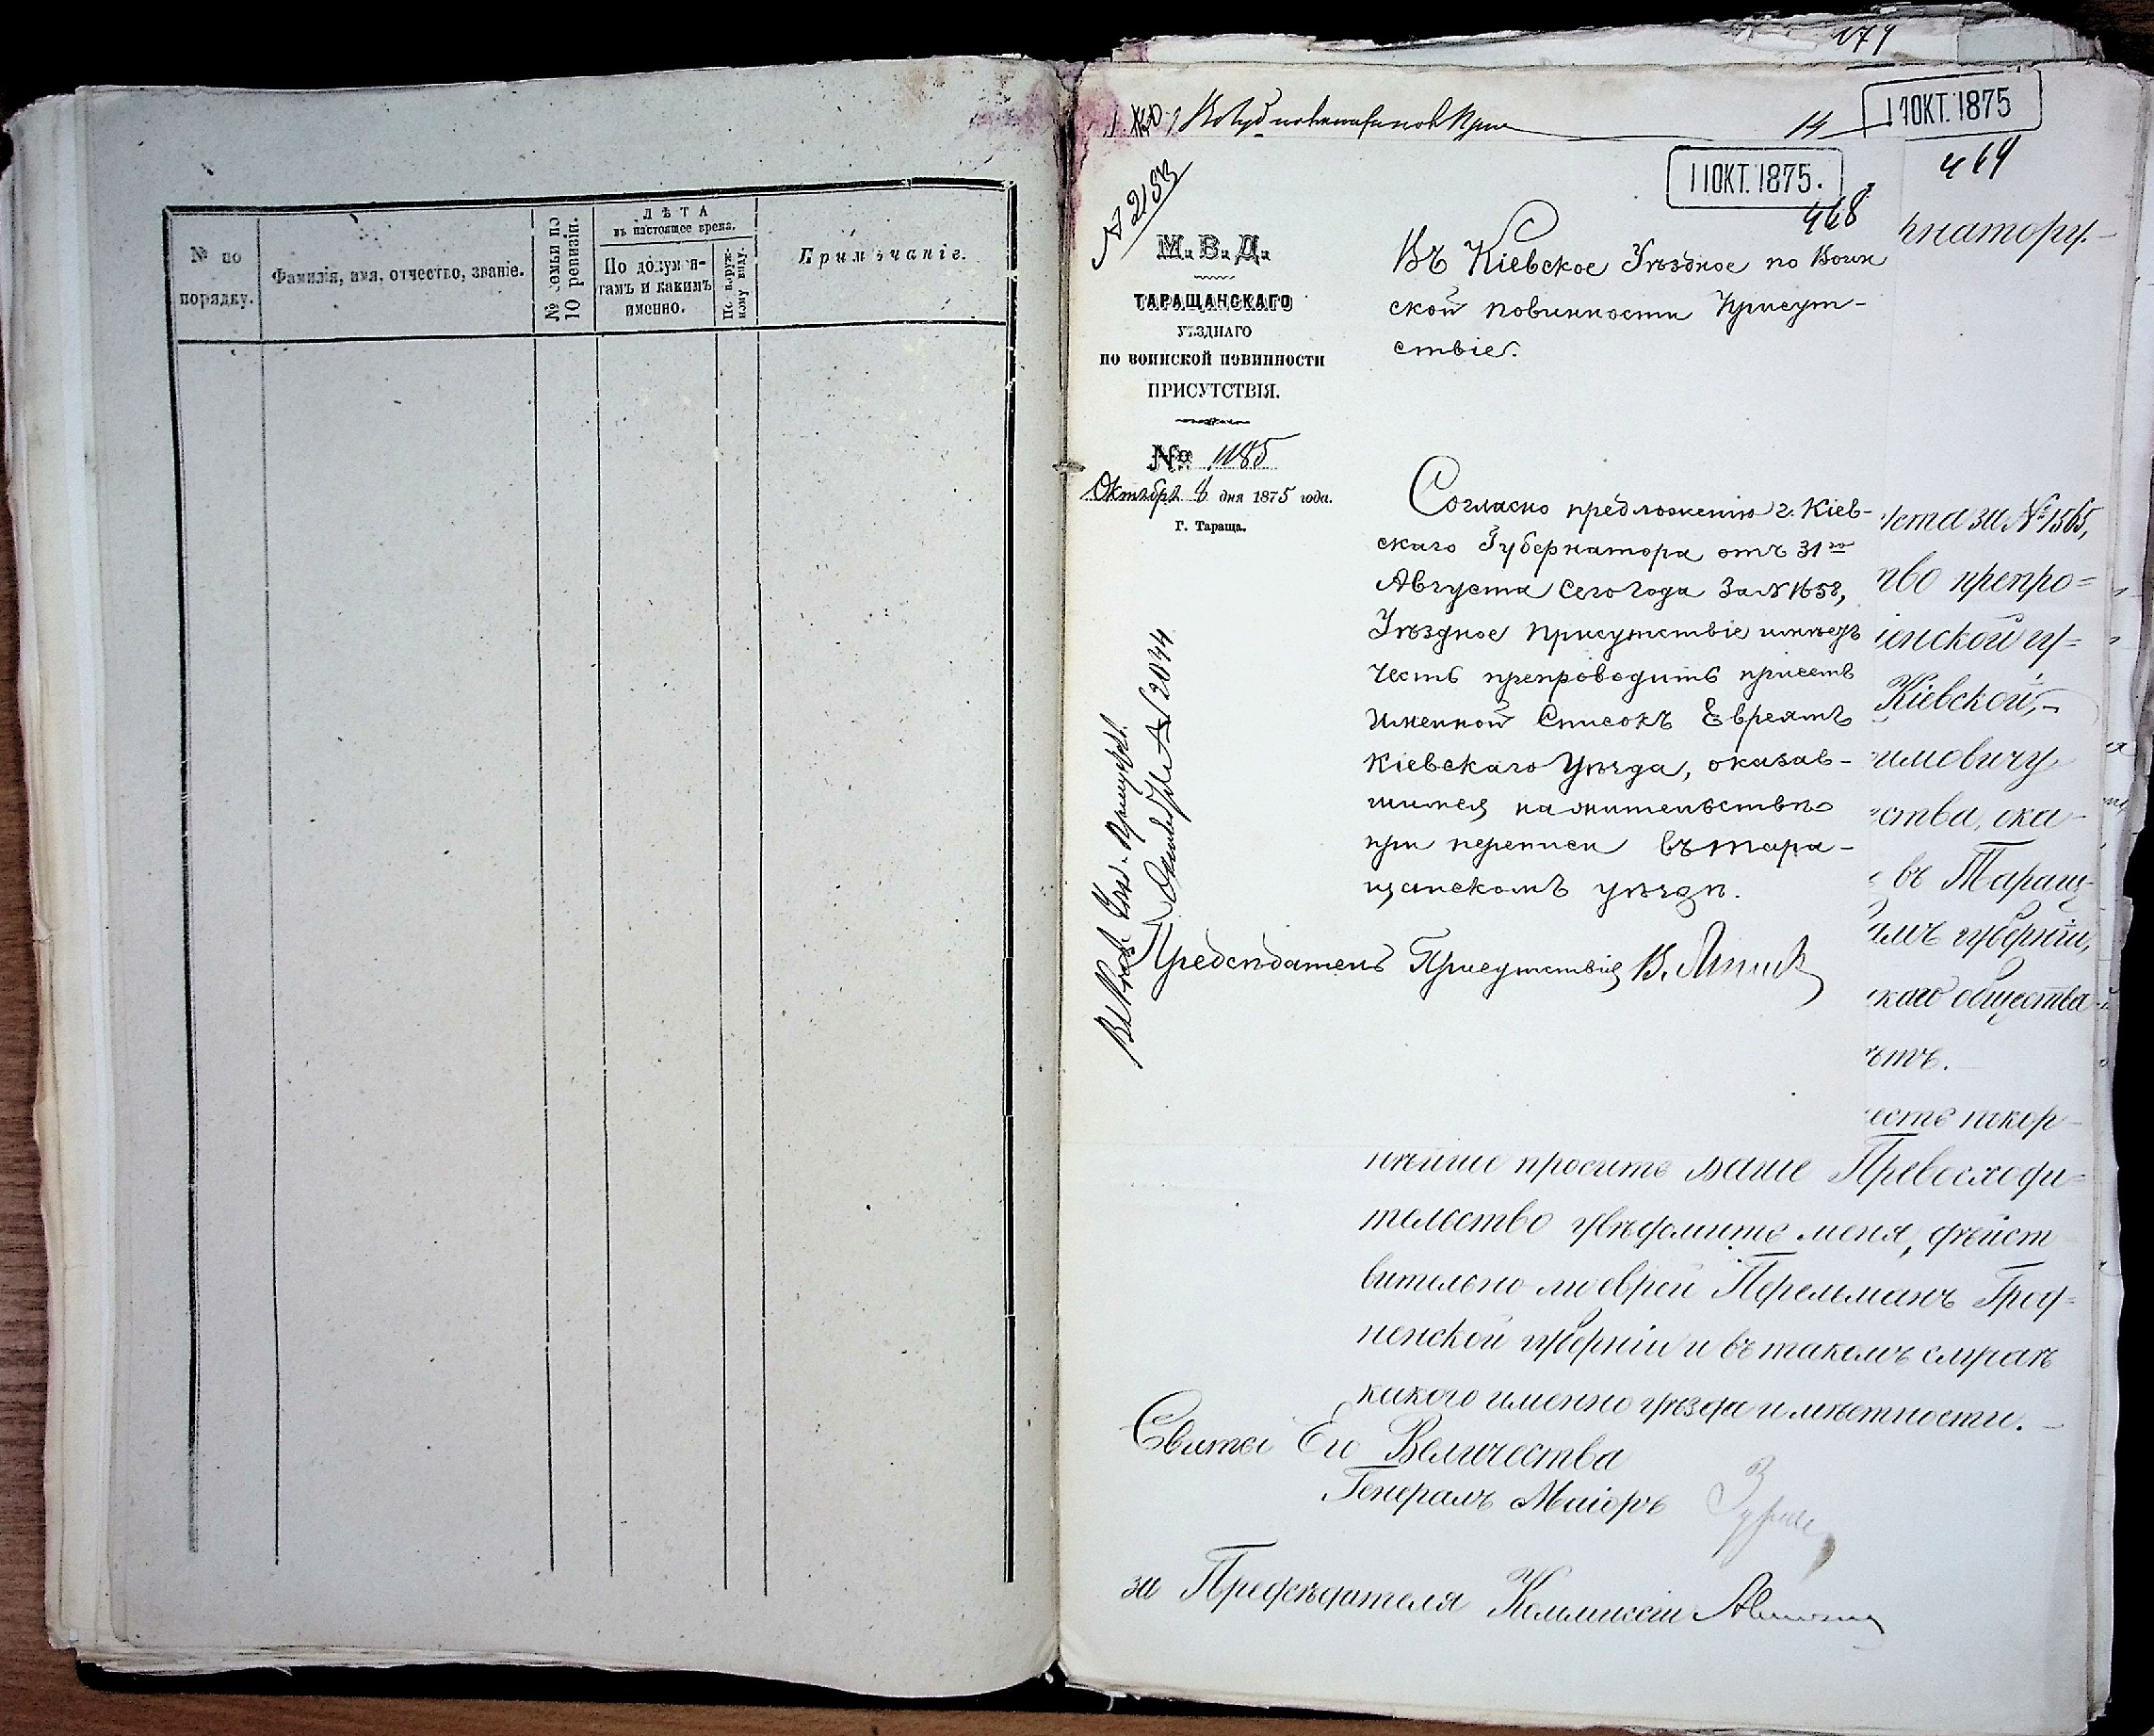 № по порядку.
Фамилія, имя, отчество, званіе.
№ семьи по 10 ревизіи.
ЛѢТА
въ настоящее время.
По докумен-
тамъ и какимъ
именно.
По наруж-
ному виду.
Примѣчаніе.
174
14
11 ОКТ. 1875
464
11 ОКТ. 1875.
468
№ 2153
М. В. Д.
ТАРАЩАНСКАГО
УѢЗДНАГО
ПО ВОИНСКОЙ ПОВИННОСТИ
ПРИСУТСТВІЯ.
№ 1185
Октября 8 дня 1875 года.
Г. Тараща.
Въ Кіевское Уѣздное по Воин
ской повинности Присут-
ствіе.
Согласно предложенію г. Кіев-
скаго Губернатора отъ 31го
Августа сего года за № 1658,
Уѣздное Присутствіе имѣетъ
честь препроводить при семъ
именной списокъ Евреямъ
Кіевскаго уѣзда, оказав-
шимся на жительствѣ
при переписи въ Тара-
щанскомъ уѣздѣ.
Предсѣдатель Присутствія В.
№ 2044
рнатору.
ста за № 1565,
тво препро=
Кіевской,
имовичу
ства, ока-
въ Таращ-
имъ губерніи,
скаго общества
ѣтъ.
есть покор-
нѣйше просить ваше Превосходи=
тельство увѣдомить меня, дѣйст
вительно ли еврей Перельманъ Грод=
ненской губерніи и въ такомъ случаѣ
какого именно уѣзда и мѣстности.
Свиты Его Величества
Генералъ Маіоръ
за Предсѣдателя Коммисіи